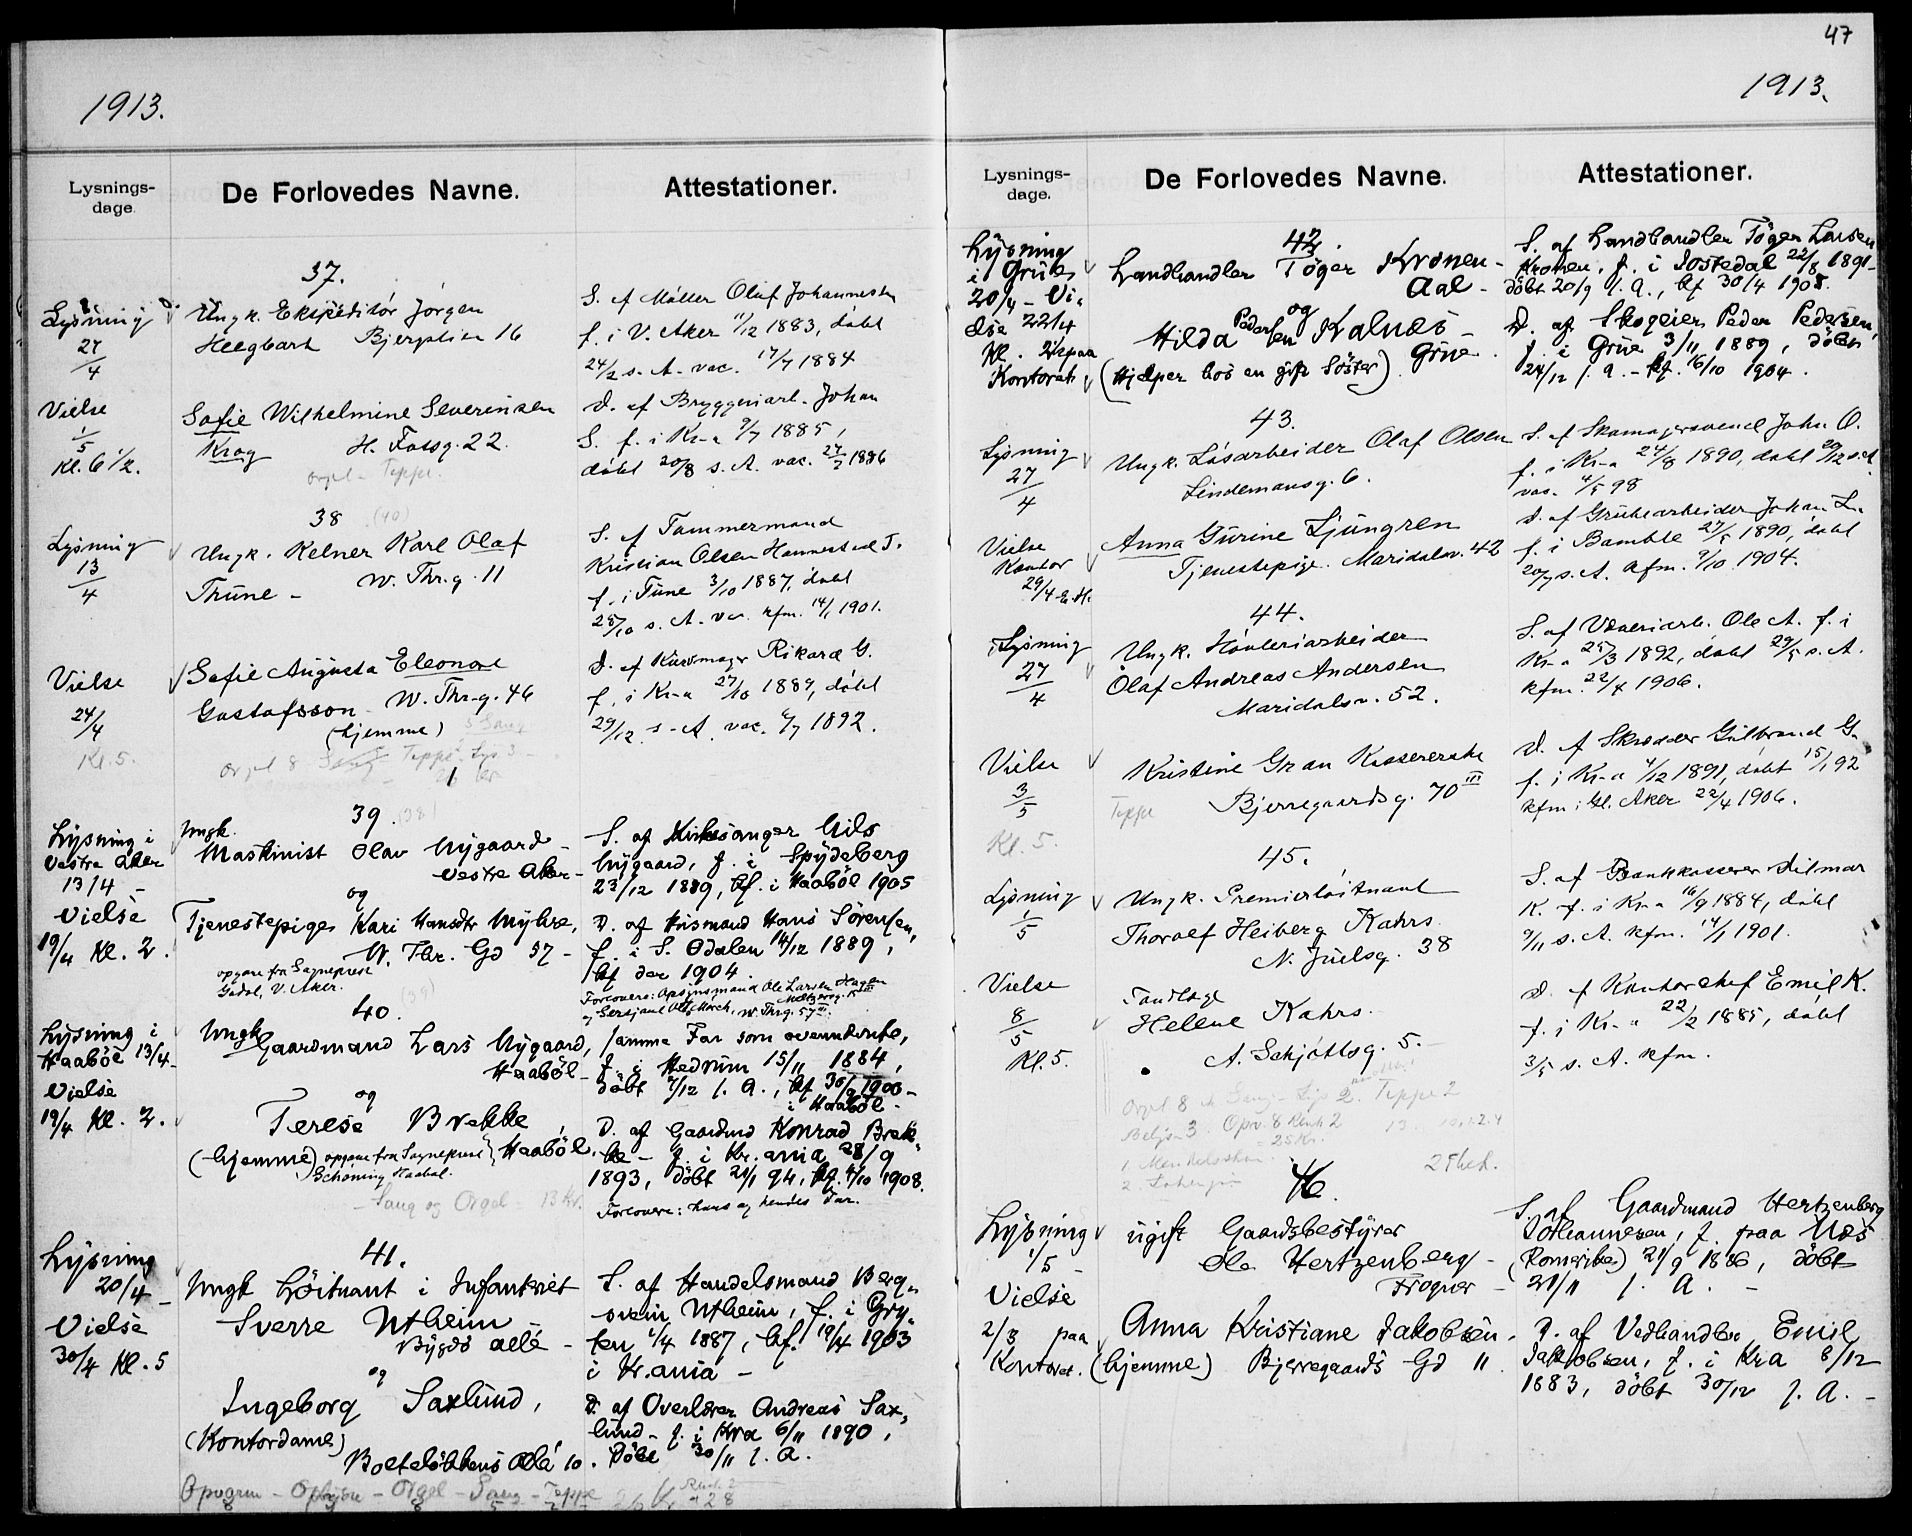 1913.
Lysnings-
dage.
De Forlovedes Navne.
Attestationer.
37.
Lysning
27/4
Ungk. Ekspeditör Jörgen
Heegbart Bjergstien 16
S. af Möller Oluf Johannesen
f. i V. Aker 11/12 1883, döbt
24/2 s. A. vac. 17/7 1884
Vielse
1/5
Kl. 6 1/2.
Sofie Wilhelmine Severinsen
Krog H. Fossg. 22.
Orgel - Teppe.
D. af Bryggeriarb. Johan
S. f. i Kr-a 9/7 1885,
döbt 20/8 s. A. vac. 27/7 1886
38 (40)
Lysning
13/4
Ungk. Kelner Karl Olaf
Thune - W. Thr. g. 11
S. af Tømmermand
Kristian Olsen Hannestad T.
f. i Tune 3/10 1887, döbt
28/10 s. A. vac. kfm. 14/1 1901.
Vielse
24/4
Kl. 5.
Sofie Augusta Eleonore
Gustafsson - W. Thr. g. 46
(hjemme)
D. af Kurvmager Rikard G.
f. i Kr-a 27/10 1889, döbt
29/12 s. A. vac. 6/7 1892.
39 (38)
Lysning i
Vestre Aker
13/4 -
Vielse
19/4 Kl. 2.
Ungk.
Maskinist Olav Nygaard -
Vestre Aker -
og
Tjenestepige Kari Hansdtr Myhre,
W. Thr. Gd 57 -
opgave fra Sogneprest
Gedal, V. Aker.
S. af Kirkesanger Nils
Nygaard, f. i Spydeberg
23/12 1889, kf. i Haaböl 1905
D. af Husmand Hans Sörensen,
f. i S. Odalen 14/12 1889,
kf der 1904
Forlovere: Opsynsmand Ole Larsen Hagen
og Sersjant Olaf Morck, W. Thrg. 57 III.
40. (39)
Lysning i
Haaböl 13/4 -
Vielse
19/4 Kl. 2.
Ungk.
Gaardmand Lars Nygaard,
Haaböl -
og
Terese Brekke,
(hjemme) opgave fra Sogneprest Haaböl.
Schöning Haaböl.
- Sang og Orgel - 13 Kr.
samme Far som ovennævnte,
f. i Hedrum 15/11 1884,
döbt 7/12 s. A., kf 30/9 1900 -
i Haaböl -
D. af Gaardmd Konrad Brek-
ke - f. i Kr.ania 28/9
1893, döbt 21/1 94, kf. 4/10 1908.
Forlovere: hans og hendes Far.
41.
Lysning
20/4 -
Vielse
30/4 Kl. 5
Ungk Löitnant i Infanteriet
Sverre Utheim -
Bygdö allé -
og
Ingeborg Saxlund,
(Kontordame)
Bolteløkkens Allé 10.
S. af Handelsmand Berg-
svein Utheim, f. i Gry-
ten 1/4 1887, kf. 19/4 1903
i Kr.ania -
D. af Overlærer Andreas Sax-
lund - f. i Kra 6/11 1890,
Döbt 30/11 s. A.
Opvarm - Oplysn - Orgel - Sang - Teppe
47
1913.
Lysnings-
dage.
De Forlovedes Navne.
Attestationer.
42.
Lysning
i Grue
20/4 - Vi-
else 22/4
Kl. 2 1/2 paa
Kontoret.
Landhandler Töger Kronen -
Aal -
og
Hilda Pedersen Kalnæs -
(Hjelper hos en gift Söster) Grue
S. af Landhandler Töger Larsen
Kronen, f. i Jostedal 22/8 1891 -
döbt 20/9 s. A., kf 30/4 1905.
D. af Skogeier Peder Pedersen,
f. i Grue 3/11 1889, döbt
24/12 s. A. - kf. 16/10 1904.
43.
Lysning
27/4
Ungk. Lösarbeider Olaf Olsen
Lindemansg. 6.
S. af Skomagersvend John O.
f. i Kr-a 24/8 1890, döbt 29/12 s. A.
vac. 4/5 98
Vielse
Kontor
29/4 E.M.
Anna Gurine Ljungren
Tjenestepige. Maridalsv. 42
D. af Grubearbeider Johan L.
f. i Bamble 27/5 1890, döbt
20/7 s. A. kfm. 9/10 1904.
44.
Lysning
27/4
Ungk. Hövleriarbeider
Olaf Andreas Andersen
Maridalsv. 52.
S. af Væveriarb. Ole A. f. i
Kr-a 25/3 1892, döbt 29/5 s. A.
kfm. 22/4 1906.
Vielse
3/5
Kl. 5.
Kristine Gran Kassererske
Teppe Bjerregaardsg. 70 III
D. af Skrædder Gulbrand G.
f. i Kr-a 4/12 1891, döbt 15/1 92
kfm. i Gl. Aker 22/4 1906.
45.
Lysning
1/5
Ungk. Premierløitnant
Thoralf Heiberg Kahrs.
N. Juelsg. 38
S. af Bankkasserer Hilmar
K. f. i Kr-a 16/9 1884, döbt
9/11 s. A. kfm. 14/1 1901.
Vielse
8/5
Kl. 5.
Tandlæge
Helene Kahrs.
A. Schjöttsg. 5.
D. af Kontorchef Emil K.
f. i Kr-a 22/2 1885, döbt
3/5 s. A. kfm.
Orgel 8 Sang - Lys 2. Teppe 2
46.
Lysning
1/5 -
Vielse
2/3 paa
Kontoret.
ugift Gaardsbestyrer
Ole Hertzenberg -
Frogner -
Anna Kristiane Jakobsen -
(hjemme) Bjerregaards Gd 11
S. af Gaardmand Hertzenberg
Johannesen, f. paa Næs
(Romerike) 21/9 1886, döbt
21/11 s. A. -
D. af Vedhandler Emil
Jakobsen, f. i Kra 8/12
1883, döbt 30/12 s. A. -